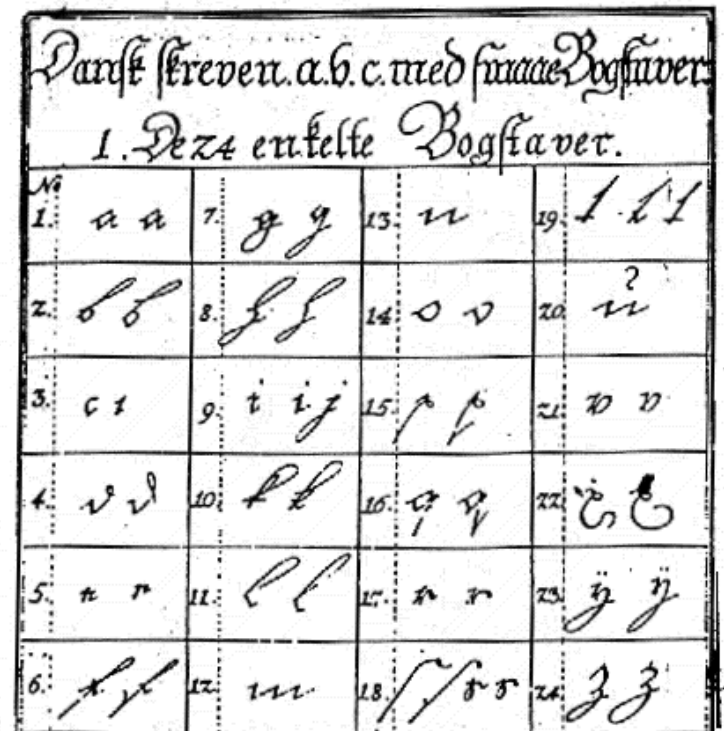 Danſk ſkreven. a. b. c. med ſmaae Bogſtaver.
1. De 24 enkelte Bogſtaver.
No
1. a a 7. g g 13. n 19. t t t
2. b b 8. h h 14. o o 20. u
3. c c 9. i i j 15. p p 21. v v
4. d d 10. k k 16. q q 22. x x
5. e e 11. l l 17. r r 23. ÿ ÿ
6. f f 12. m 18. ſ ſ s s 24. z z